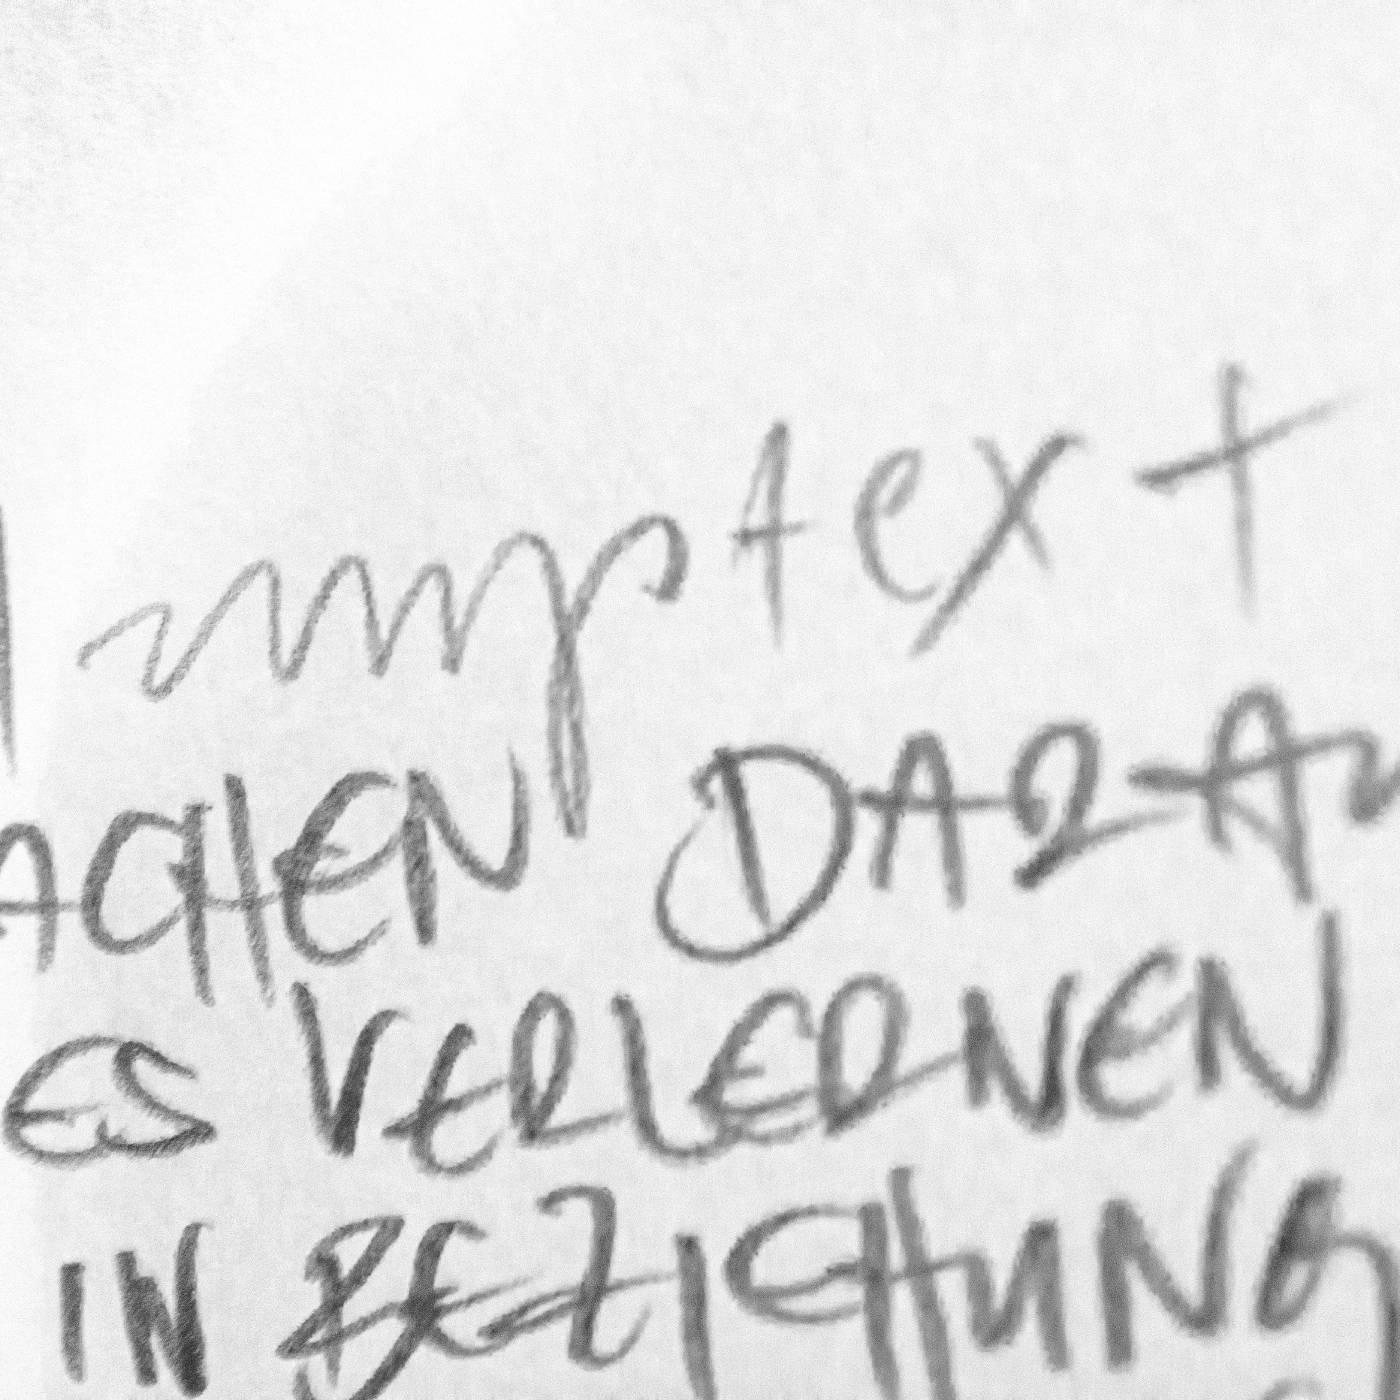 Imptext
ACHEN DARAU
ES VERLERNEN
IN BEZIEHUNG